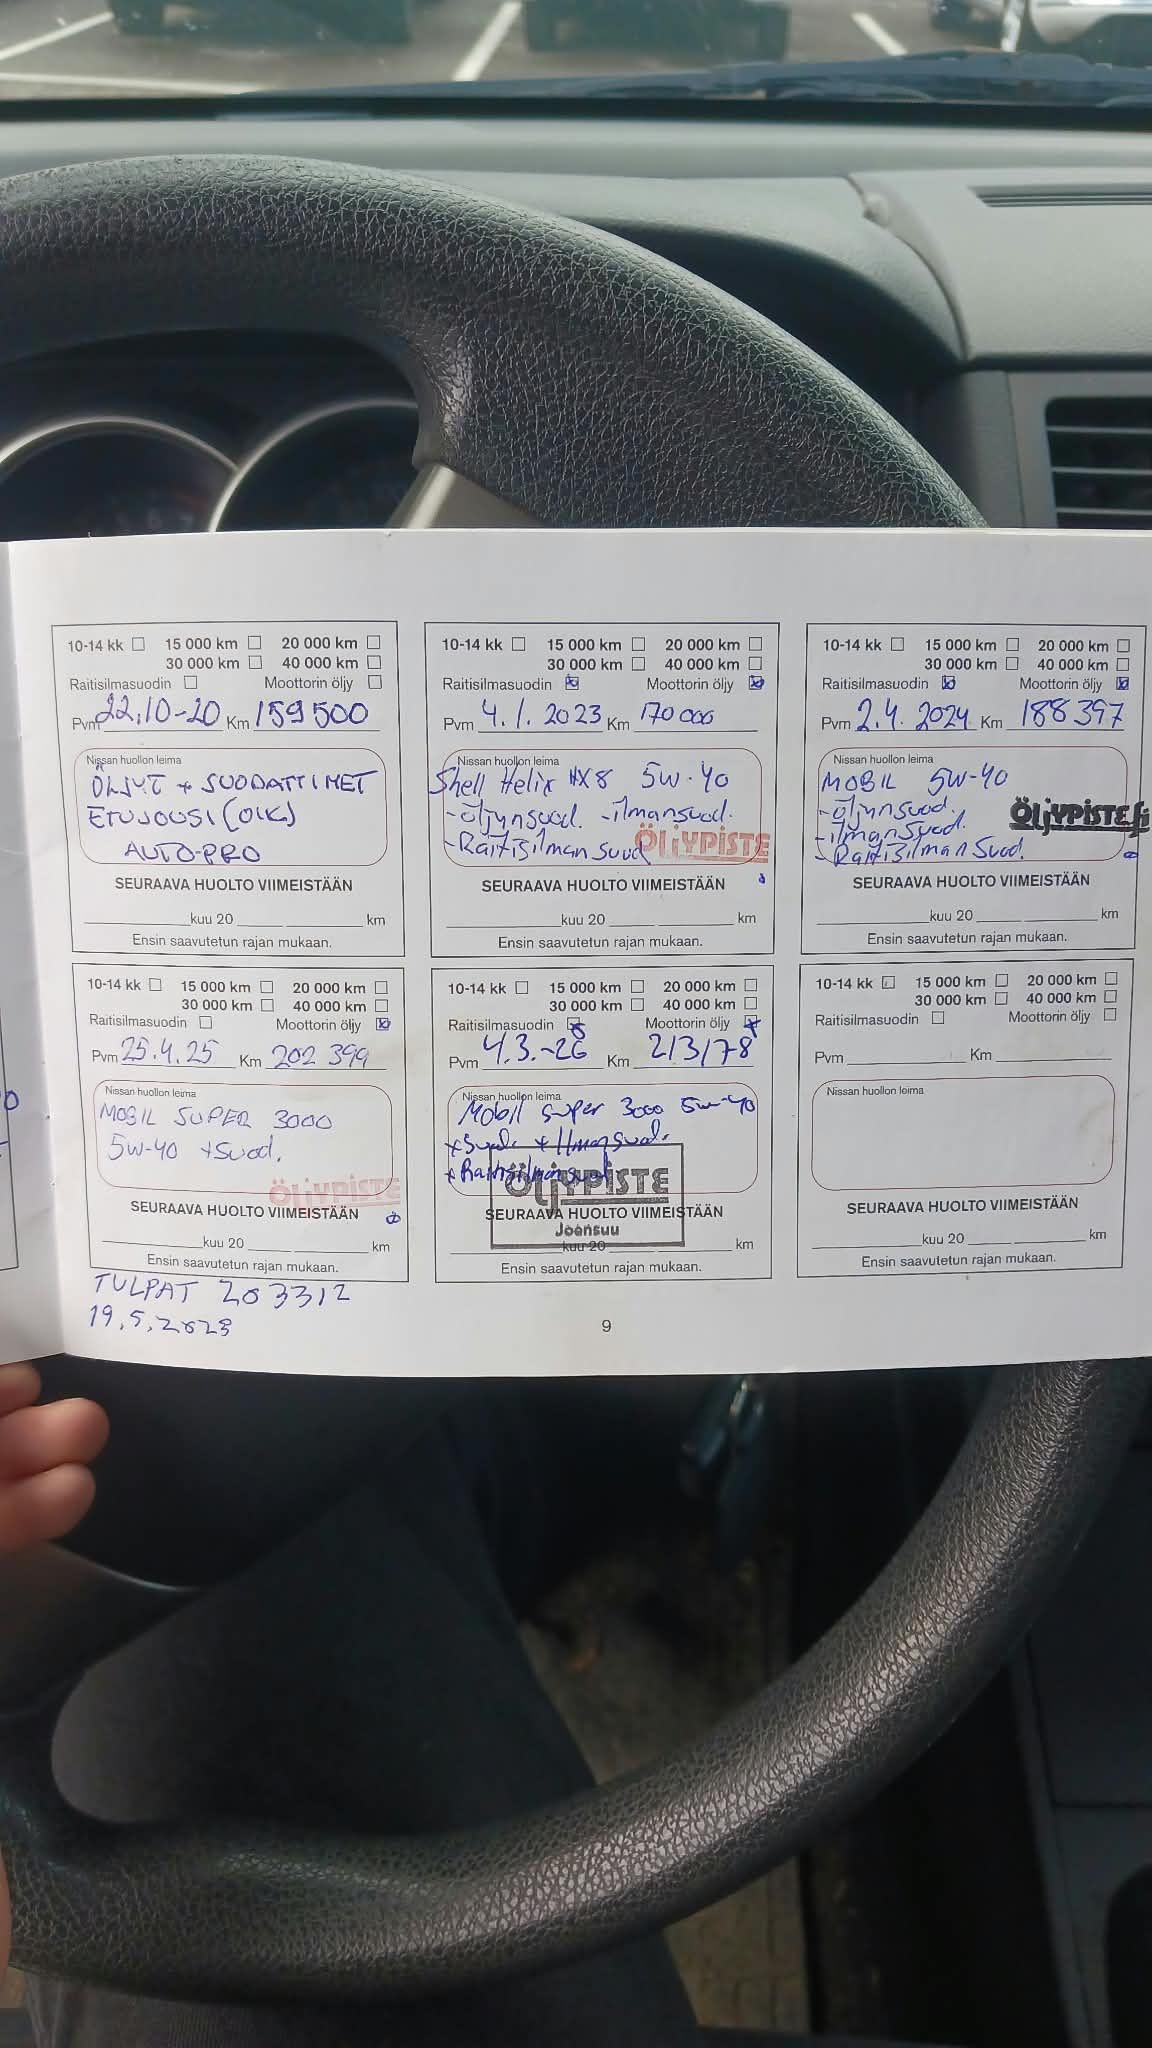 10-14 kk 15 000 km 20 000 km
30 000 km 40 000 km
Raitisilmasuodin Moottorin öljy
Pvm 22.10-20 Km 159500
Nissan huollon leima
ÖLJYT + SUODATTIMET
ETUJOUSI (OIK)
AUTO-PRO
SEURAAVA HUOLTO VIIMEISTÄÄN
kuu 20 km
Ensin saavutetun rajan mukaan.
10-14 kk 15 000 km 20 000 km
30 000 km 40 000 km
Raitisilmasuodin Moottorin öljy
Pvm 4.1.2023 Km 170 000
Nissan huollon leima
Shell Helix HX8 5w-40
-öljynsuod. -ilmansuod.
-Raitisilmansuod
ÖljYPISTE
SEURAAVA HUOLTO VIIMEISTÄÄN
kuu 20 km
Ensin saavutetun rajan mukaan.
10-14 kk 15 000 km 20 000 km
30 000 km 40 000 km
Raitisilmasuodin Moottorin öljy
Pvm 2.4.2024 Km 188397
Nissan huollon leima
MOBIL 5w-40
-öljynsuod.
-ilmansuod.
-Raitisilmansuod.
ÖljYPISTE.fi
SEURAAVA HUOLTO VIIMEISTÄÄN
kuu 20 km
Ensin saavutetun rajan mukaan.
10-14 kk 15 000 km 20 000 km
30 000 km 40 000 km
Raitisilmasuodin Moottorin öljy
Pvm 25.4.25 Km 202 399
Nissan huollon leima
MOBIL SUPER 3000
5w-40 +suod.
ÖljYPISTE
SEURAAVA HUOLTO VIIMEISTÄÄN
kuu 20 km
Ensin saavutetun rajan mukaan.
10-14 kk 15 000 km 20 000 km
30 000 km 40 000 km
Raitisilmasuodin Moottorin öljy
Pvm 4.3.-26 Km 213178
Nissan huollon leima
Mobil super 3000 5w-40
+suod. +Ilmansuod.
+Raitisilmansuod
ÖljYPISTE
SEURAAVA HUOLTO VIIMEISTÄÄN
Joensuu
kuu 20 km
Ensin saavutetun rajan mukaan.
10-14 kk 15 000 km 20 000 km
30 000 km 40 000 km
Raitisilmasuodin Moottorin öljy
Pvm Km
Nissan huollon leima
SEURAAVA HUOLTO VIIMEISTÄÄN
kuu 20 km
Ensin saavutetun rajan mukaan.
TULPAT 203312
19.5.
9